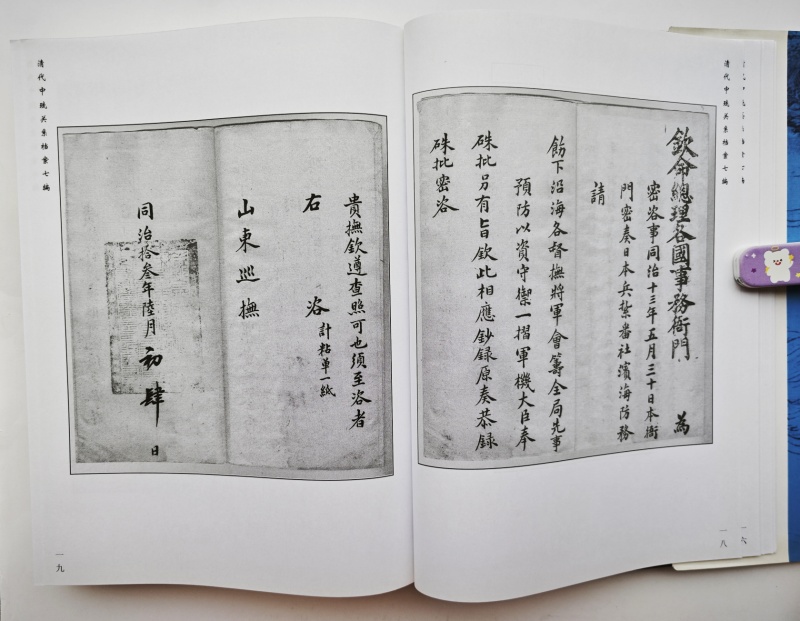 清代中琉关系档案七编
欽命總理各國事務衙門 為
密咨事同治十三年五月三十日本衙
門密奏日本兵紮番社濱海防務
請
飭下沿海各督撫將軍會籌全局先事
預防以資守禦一摺軍機大臣奉
硃批另有旨欽此相應鈔録原奏恭録
硃批密咨
一六
一八
貴撫欽遵查照可也須至咨者
計粘單一紙
右 咨
山東巡撫
同治拾叁年陸月初肆日
清代中琉关系档案七编
一九